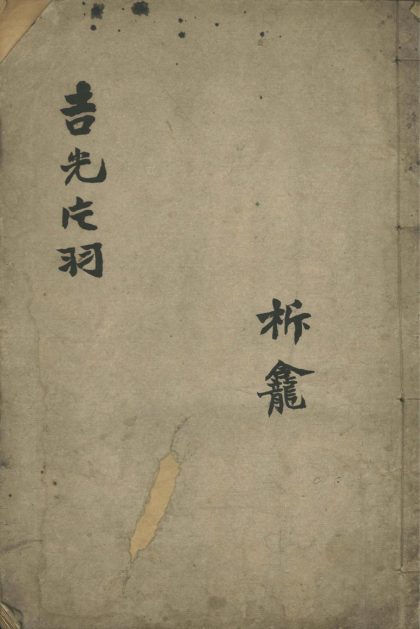 析龕
吉光片羽